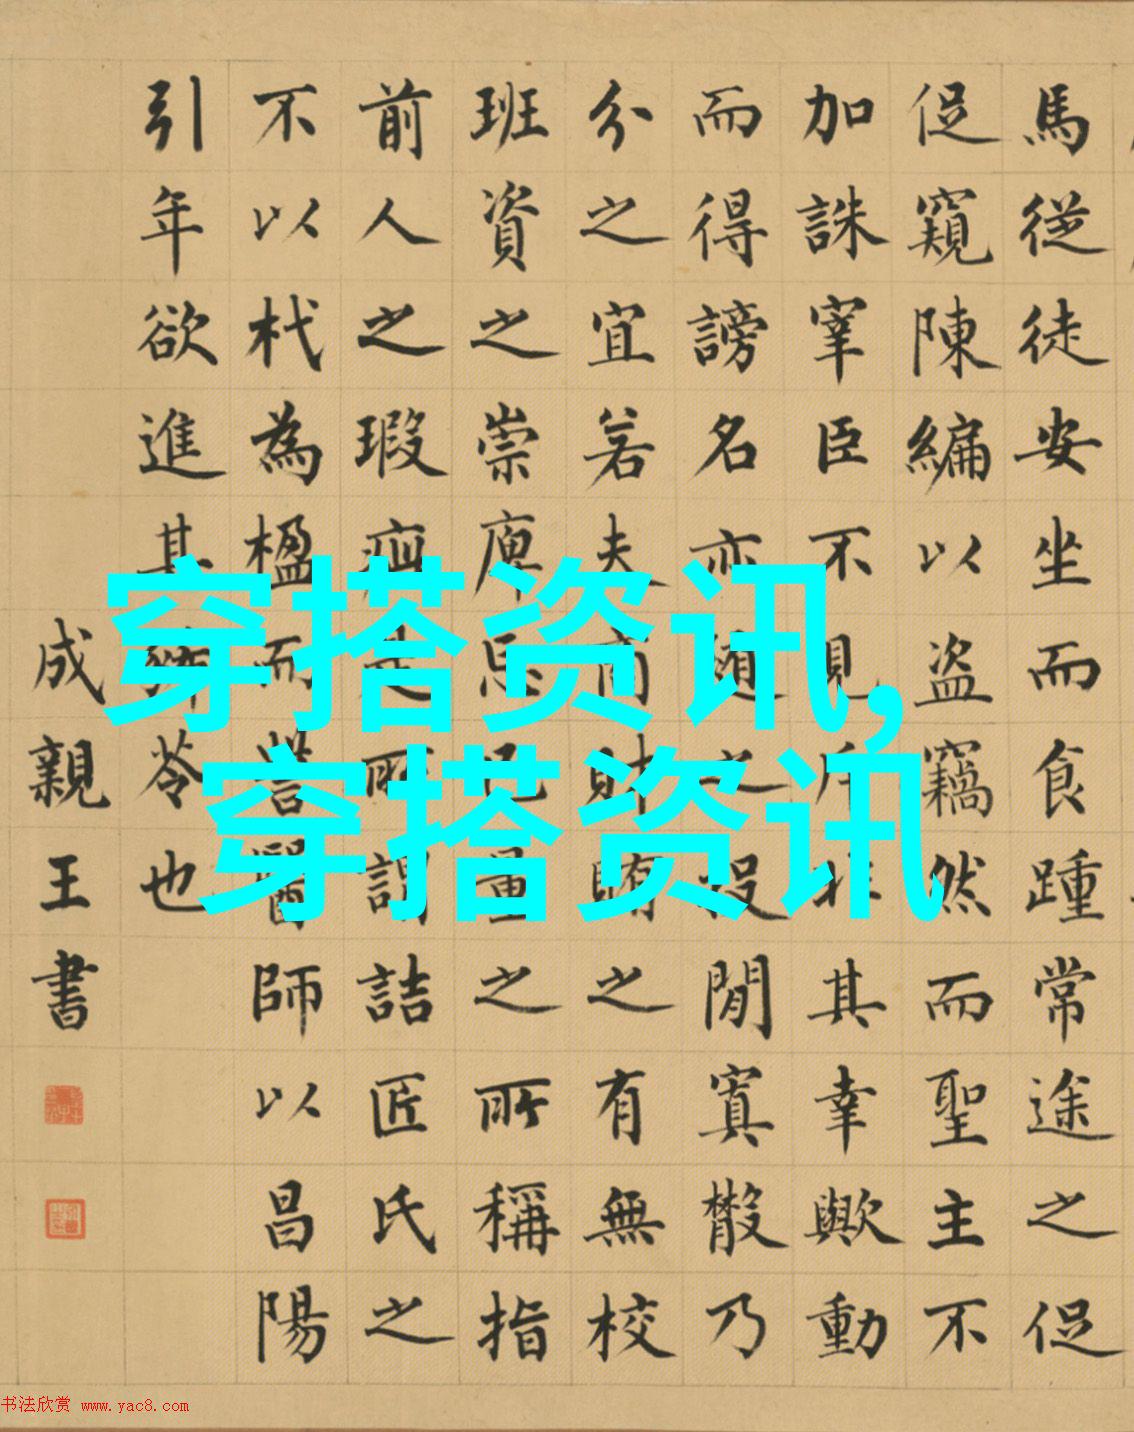 馬從徒安坐而食踵常途之促
促窺陳編以盜竊然而聖主不
加誅宰臣不見斥非其幸歟動
而得謗名亦隨之投閒寘散乃
分之宜若夫商財賄之有無校
班資之崇庳忘己量之所稱指
前人之瑕疵是所謂詰匠氏之
不以杙為楹而訾醫師以昌陽
引年欲進其豨苓也
成親王書
穿搭资讯,
穿搭资讯
书法欣赏 www.yac8.com